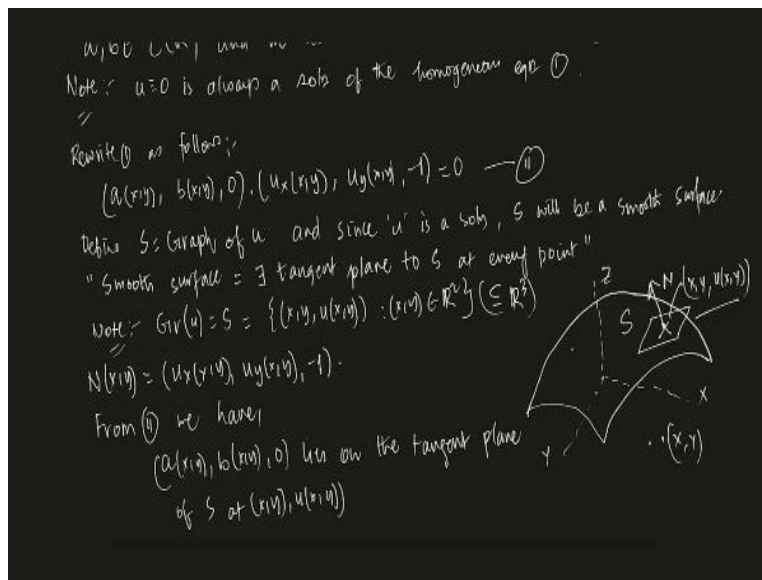 Note :- u=0 is always a soln of the homogeneous eqn ①.
Rewrite ① as follows :-
(a(x,y), b(x,y), 0) . (ux(x,y), uy(x,y), -1) = 0 — ⑪
Define S = Graph of u and since 'u' is a soln, S will be a smooth surface.
"Smooth surface = ∃ tangent plane to S at every point"
Note :- Gr(u) = S = {(x,y, u(x,y)) : (x,y) ∈ ℝ²} (⊆ ℝ³)
N(x,y) = (ux(x,y), uy(x,y), -1).
From ⑪ we have,
(a(x,y), b(x,y), 0) lies on the tangent plane
of S at (x,y), u(x,y))
Z
N
(x, y, u(x,y))
S
X
Y
(x, y)